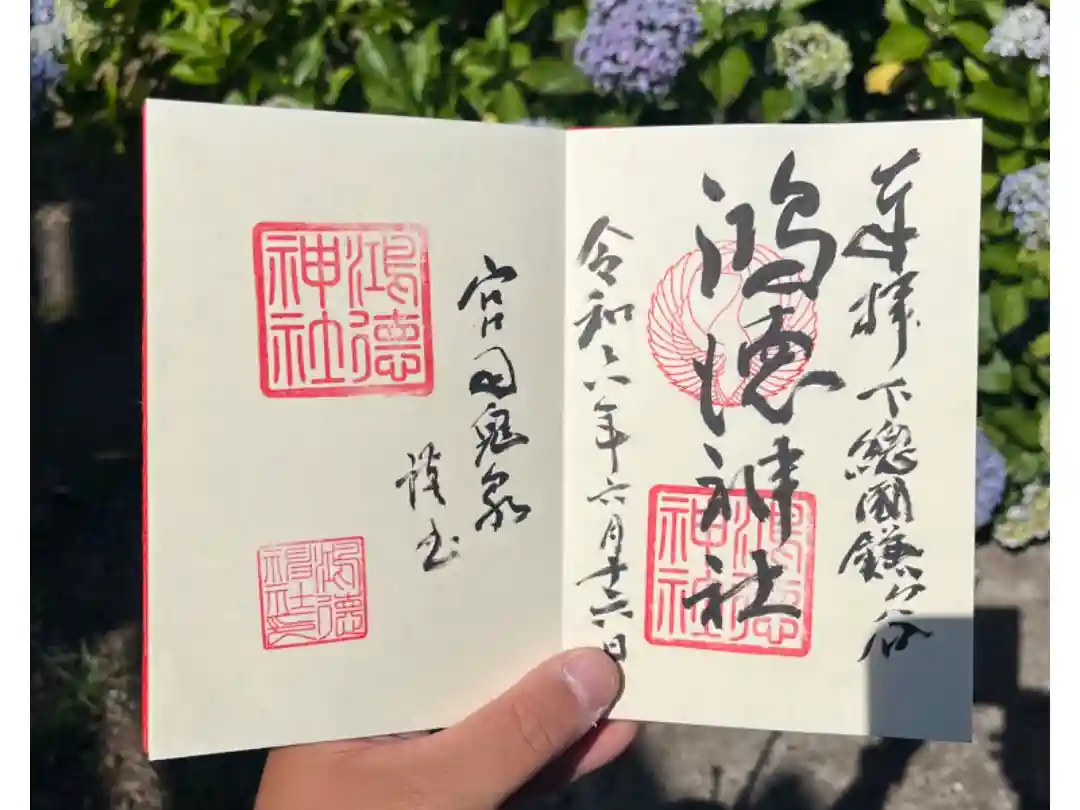 奉拝 下総國鎌ケ谷
鴻徳神社
鴻徳神社
令和六年六月十六日
宮司
謹書
鴻徳神社
鴻徳神社印